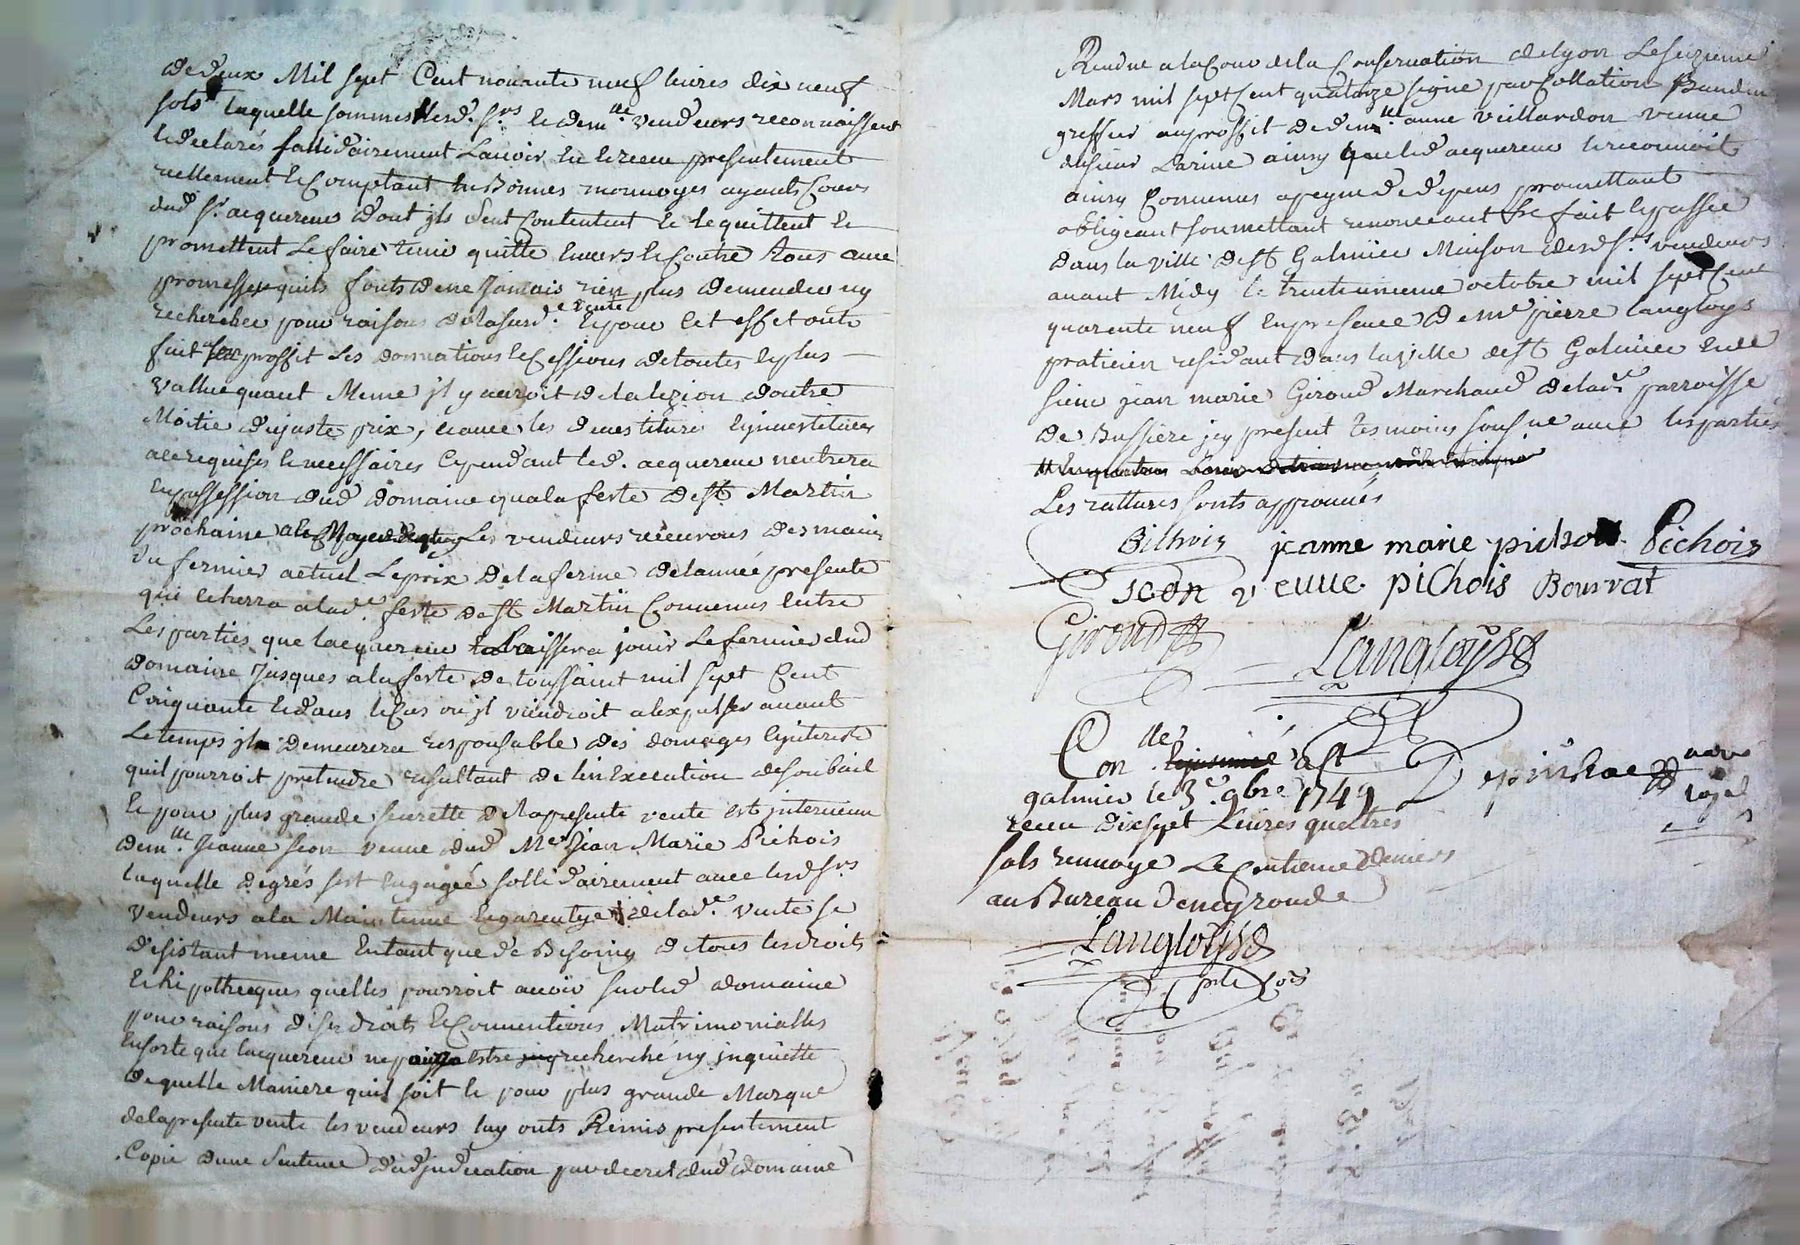 de deux Mil sept Cent nonante neuf livres dix neuf
sols laquelle somme lesd. srs. & demlle. vendeurs reconnoissent
& declarés sollidairement L'avoir Eu & receu presentement
reellement & Comptant En Bonnes monnoyes ayants Cours
dud sr. acquereur dont jls sent Contentent & le quittent &
promettent Le faire tenir quitte Envers & Contre Tous avec
promesse quils fonts de ne Jamais rien plus demender ny
rechercher pour raisons de lasusde. vente & pour Cet effet onts
fait au proffit Les donnations & Cessions de toutes Eplus
vallue quant Meme jl y auroit de la lezion d'outre
Moitie du juste prix, & avec les devestiture Ejnvestitures
a ce requises & necessaires Cependant led. acquereur n'entrera
En possession dud domaine qu'a la feste de St Martin
prochaine Les vendeurs recevrons des mains
du fermier actuel Le prix de la ferme de l'année presente
qui Echerra a lade. feste de St Martin Convenus Entre
Les parties que l'acquereur Laissera jouir Le fermier dud
domaine Jusques a la feste de toussaint mil sept Cent
Cinquante & dans le Cas ou jl viendroit a l'expulser avant
Le temps jl demeurera responsable des domages Ejnterests
quil pourroit pretendre resultant de l'inExecution de son bail
& pour plus grande seurette de la presente vente est intervenue
demlle. Jeanne Seon veuve dud Me Jean Marie Pichois
laquelle de grés sest Engagée sollidairement avec lesd srs
vendeurs a la Maintenue & garentye de lade. vente se
desistant meme En tant que de Besoing de tous les droits
& hipotheques quelles pourroit avoir sur led domaine
pour raisons de ses droits & Conventions Matrimonialles
En sorte que l'acquereur ne puisse Estre recherché ny jnquiette
de quelle Maniere quil soit & pour plus grande Marque
de la presente vente les vendeurs luy onts Remis presentement
Copie dune Sentence d'adjudication par decret dud domaine
Rendue a la Cour de la Conservation de Lyon Le seizieme
Mars mil sept Cent quatorze signé par Collation Baudin
greffier au proffit de demlle anne veillardon veuve
du sieur Larine ainsy que led acquereur le reconnoit
ainsy Convenus a peyne de depens promettant
obligeant soumettant renonceant &c fait & passée
dans la ville de St Galmier Maison desd srs vendeurs
avant Midy le trente unieme octobre mil sept Cent
quarente neuf En presence de Me pierre langloys
praticien residant dans la ville de St Galmier & de
sieur jean marie Giroud Marchand de lade parroisse
de Bussiere jcy present tesmoins sousne avec les parties
Les rattures sonts approuvés
jeanne marie pichois Pichois
seon veuve pichois Bourrat
Giroud Langloys
Con. de
a St
galmier le 3e. 9bre. 1749
receu dix sept Livres quattres
sols renvoye Le Centieme deniers
au Bureau de neyronde
Langloys
nore
royal